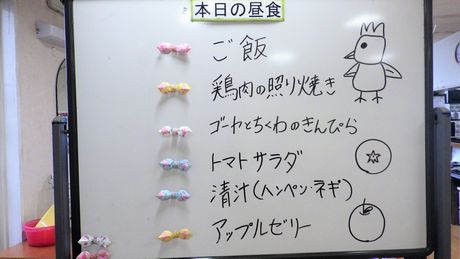 本日の昼食
ご飯
鶏肉の照り焼き
ゴーヤとちくわのきんぴら
トマトサラダ
清汁(ハンペン・ネギ)
アップルゼリー